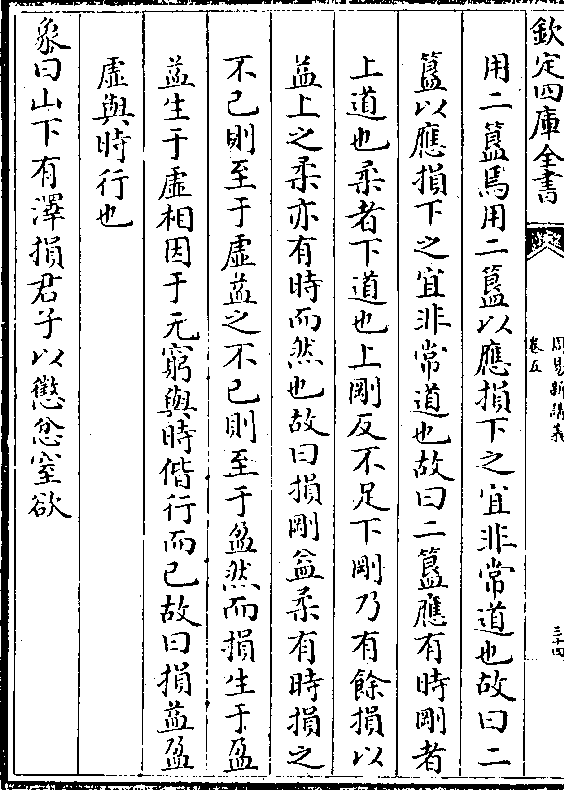 欽定四庫全書
周易新講義
卷五
三十四
用二簋焉用二簋以應損下之宜非常道也故曰二
簋以應損下之宜非常道也故曰二簋應有時剛者
上道也柔者下道也上剛反不足下剛乃有餘損以
益上之柔亦有時而然也故曰損剛益柔有時損之
不已則至于虛益之不已則至于盈然而損生于盈
益生于虛相因于无窮與時偕行而已故曰損益盈
虛與時行也
象曰山下有澤損君子以懲忿窒欲